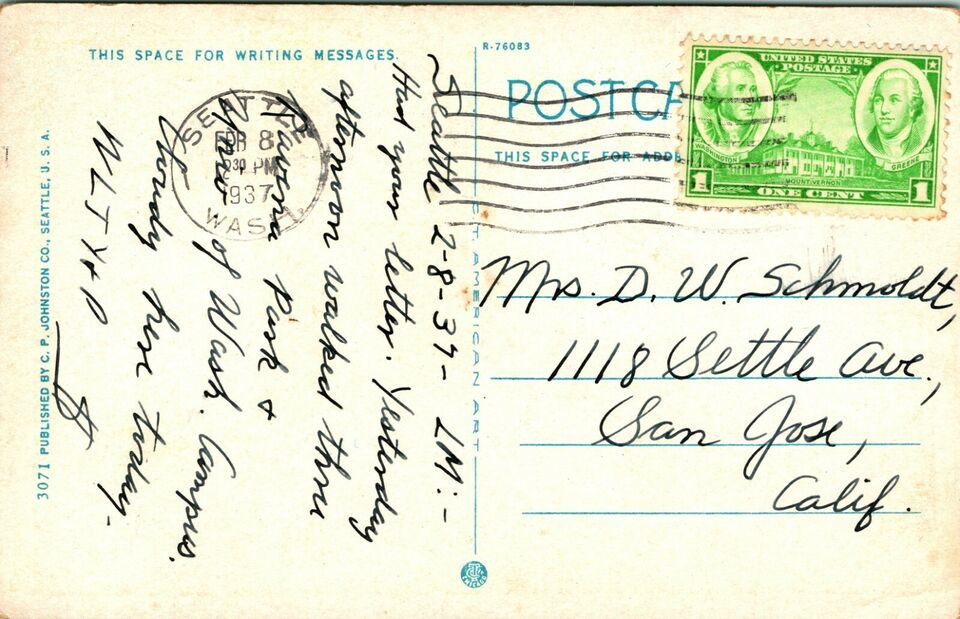 THIS SPACE FOR WRITING MESSAGES.
R-76083
POSTCA
THIS SPACE FOR ADDR
UNITED STATES
POSTAGE
WASHINGTON
GREENE
MOUNT VERNON
1 ONE CENT 1
SEATTLE
FEB 8
30 PM
1937
WASH.
Seattle 2-8-37- LM:-
Had your letter. Yesterday
afternoon walked thru
Ravenna Park &
of Wash. Campus.
here today.
Mrs. D. W. Schmoldt,
1118 Settle Ave.,
San Jose,
Calif.
3071 PUBLISHED BY C. P. JOHNSTON CO., SEATTLE, U. S. A.
C.T. AMERICAN ART
CHICAGO